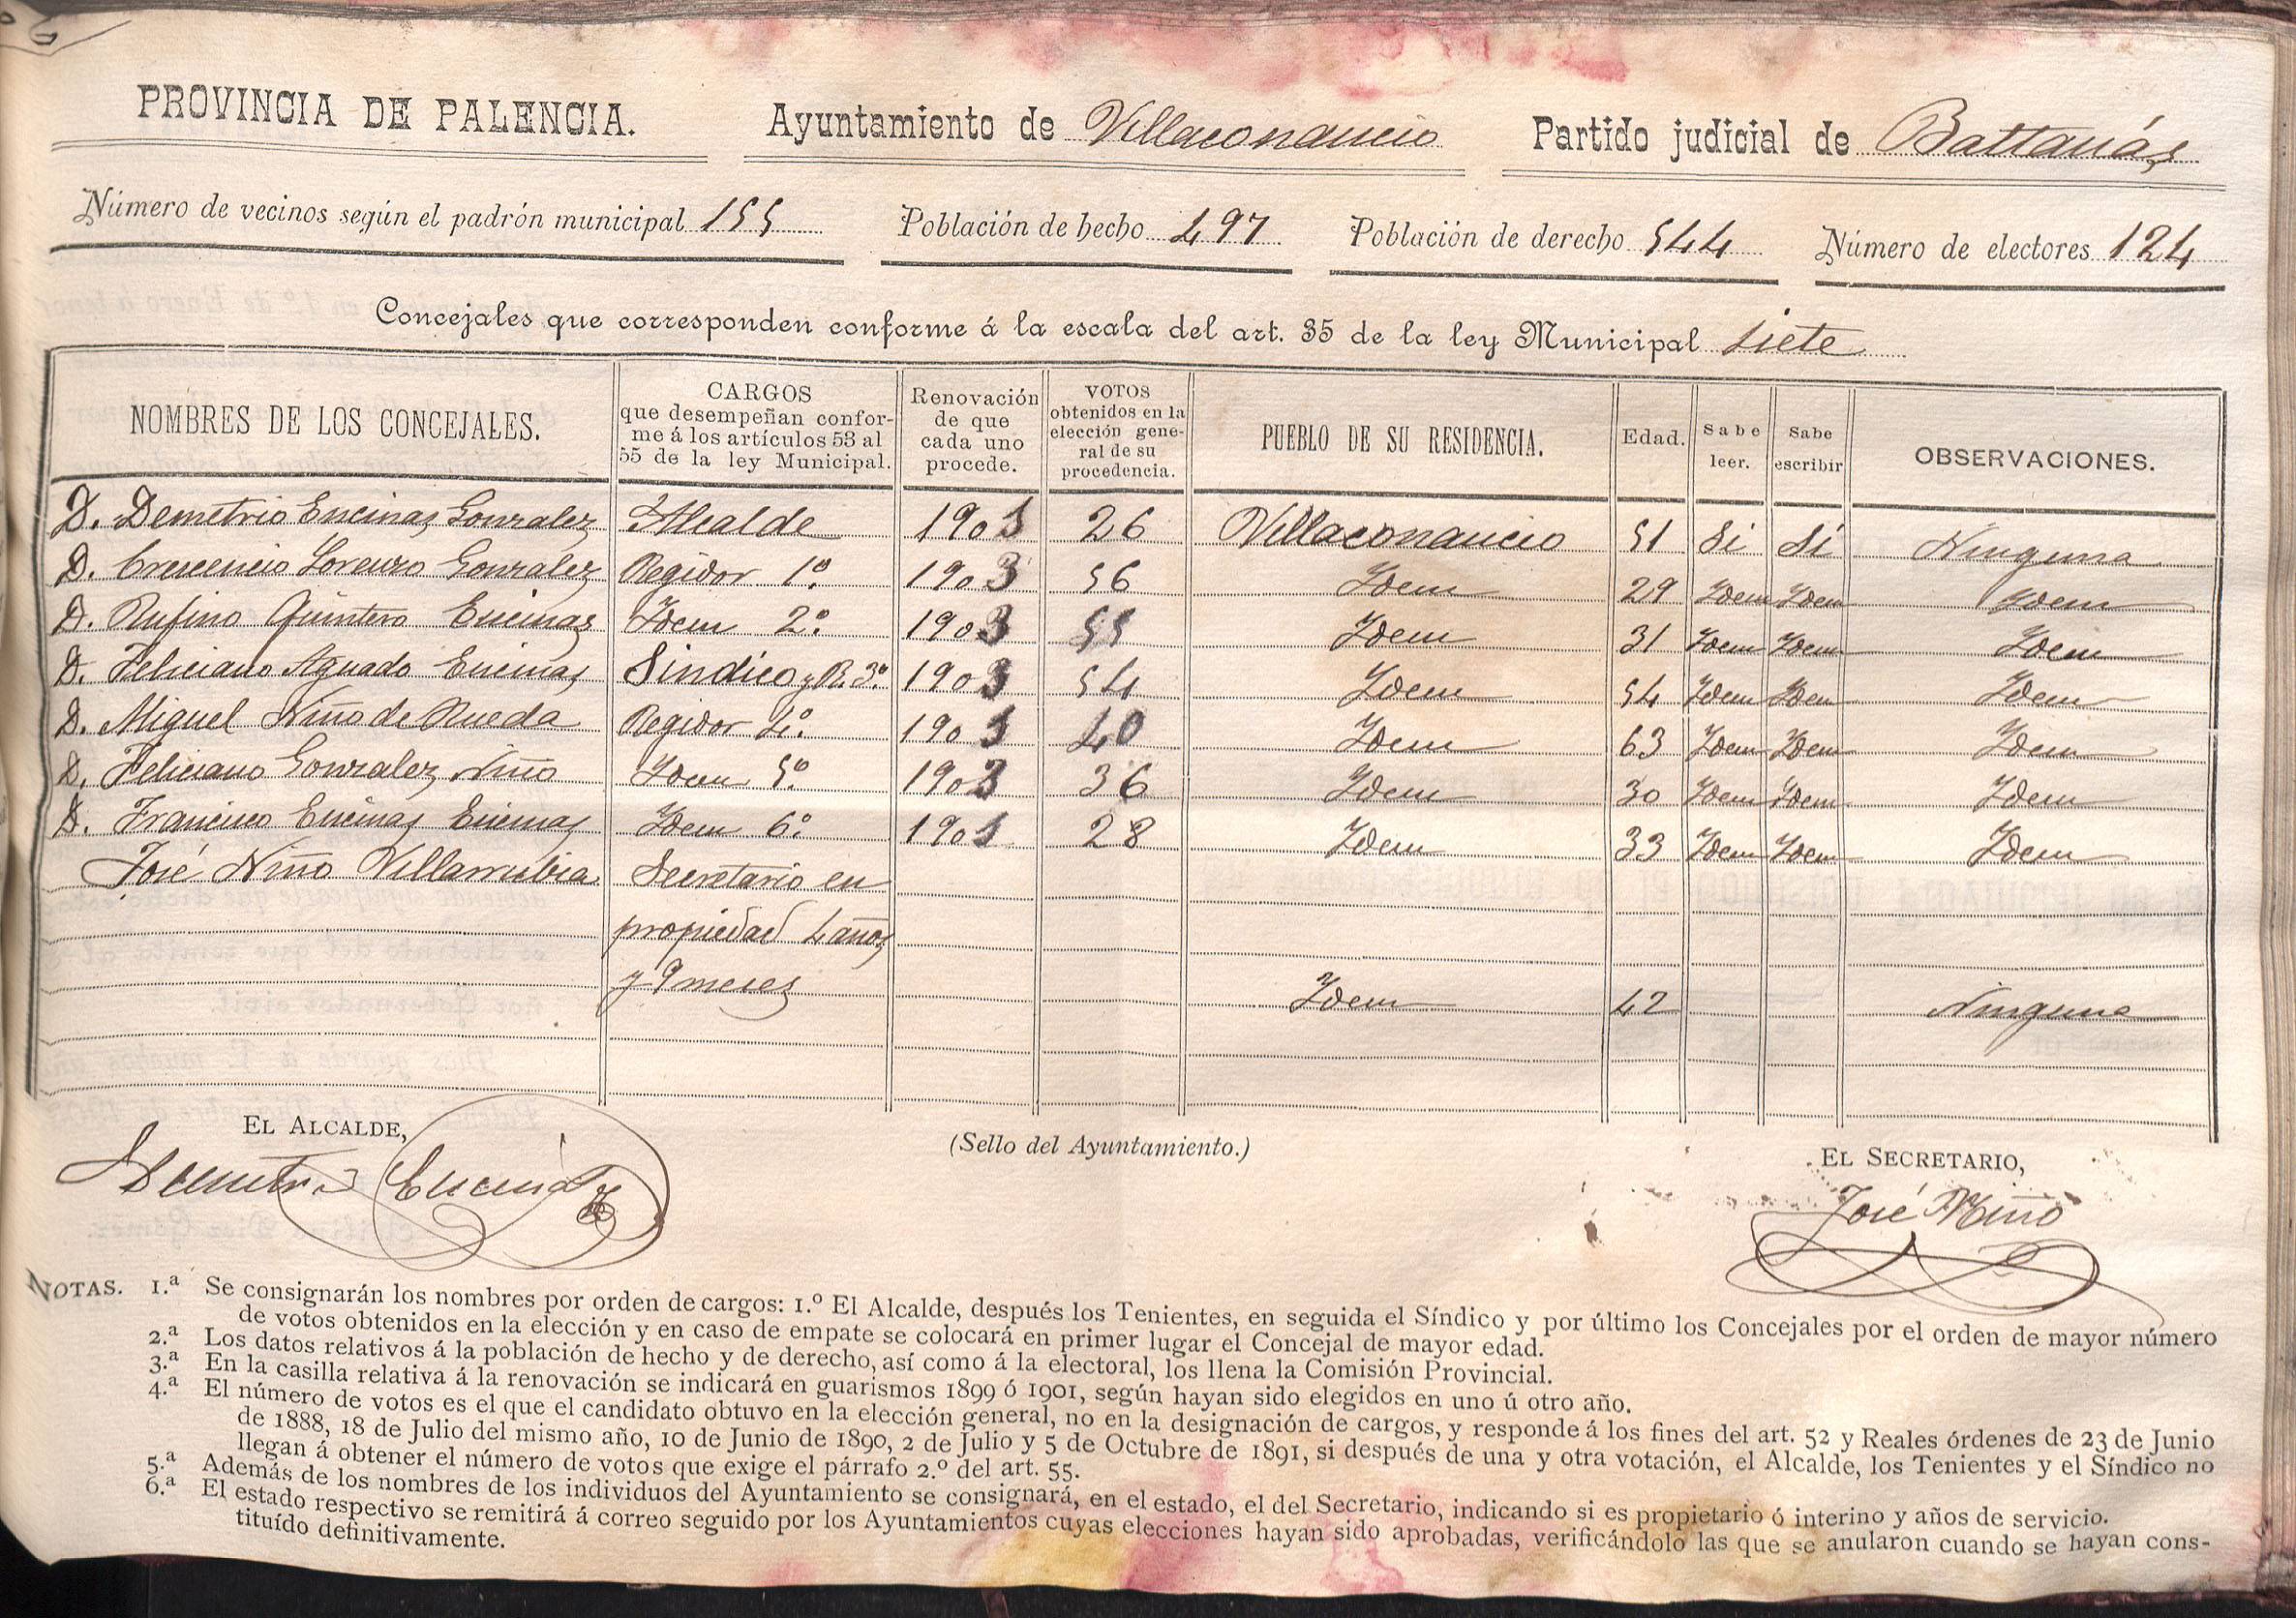 PROVINCIA DE PALENCIA. Ayuntamiento de Villaconancio Partido judicial de Baltanás
Número de vecinos según el padrón municipal 155 Población de hecho 497 Población de derecho 544 Número de electores 124
Concejales que corresponden conforme á la escala del art. 35 de la ley Municipal siete
NOMBRES DE LOS CONCEJALES. CARGOS que desempeñan confor- me á los artículos 53 al 55 de la ley Municipal. Renovación de que cada uno procede. VOTOS obtenidos en la elección gene- ral de su procedencia. PUEBLO DE SU RESIDENCIA. Edad. Sabe leer. Sabe escribir OBSERVACIONES.
D. Demetrio Encinas Gonzalez Alcalde 1901 26 Villaconancio 51 Si Si Ninguna
D. Crescencio Lorenzo Gonzalez Regidor 1º 1903 56 Idem 29 Idem Idem Idem
D. Rufino Quintero Encinas Idem 2º 1903 55 Idem 31 Idem Idem Idem
D. Feliciano Aguado Encinas Sindico y R. 3º 1903 54 Idem 54 Idem Idem Idem
D. Miguel Niño de Rueda Regidor 4º 1901 40 Idem 63 Idem Idem Idem
D. Feliciano Gonzalez Niño Idem 5º 1903 36 Idem 30 Idem Idem Idem
D. Francisco Encinas Encinas Idem 6º 1901 28 Idem 33 Idem Idem Idem
José Niño Villarrubia Secretario en
propiedad 4 años
y 9 meses Idem 42 Ninguna
EL ALCALDE, (Sello del Ayuntamiento.) EL SECRETARIO,
Demetrio Encinas José Niño
NOTAS. 1.ª Se consignarán los nombres por orden de cargos: 1.º El Alcalde, después los Tenientes, en seguida el Síndico y por último los Concejales por el orden de mayor número
de votos obtenidos en la elección y en caso de empate se colocará en primer lugar el Concejal de mayor edad.
2.ª Los datos relativos á la población de hecho y de derecho, así como á la electoral, los llena la Comisión Provincial.
3.ª En la casilla relativa á la renovación se indicará en guarismos 1899 ó 1901, según hayan sido elegidos en uno ú otro año.
4.ª El número de votos es el que el candidato obtuvo en la elección general, no en la designación de cargos, y responde á los fines del art. 52 y Reales órdenes de 23 de Junio
de 1888, 18 de Julio del mismo año, 10 de Junio de 1890, 2 de Julio y 5 de Octubre de 1891, si después de una y otra votación, el Alcalde, los Tenientes y el Síndico no
llegan á obtener el número de votos que exige el párrafo 2.º del art. 55.
5.ª Además de los nombres de los individuos del Ayuntamiento se consignará, en el estado, el del Secretario, indicando si es propietario ó interino y años de servicio.
6.ª El estado respectivo se remitirá á correo seguido por los Ayuntamientos cuyas elecciones hayan sido aprobadas, verificándolo las que se anularon cuando se hayan cons-
tituído definitivamente.